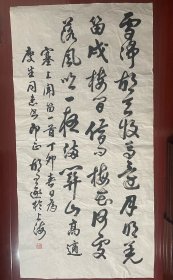 雪净胡天牧马还月明羌
笛戍楼间借问梅花何处
落风吹一夜满关山高适
塞上闻笛一首丁卯春日为
庆生同志书即正胡问遂于上海